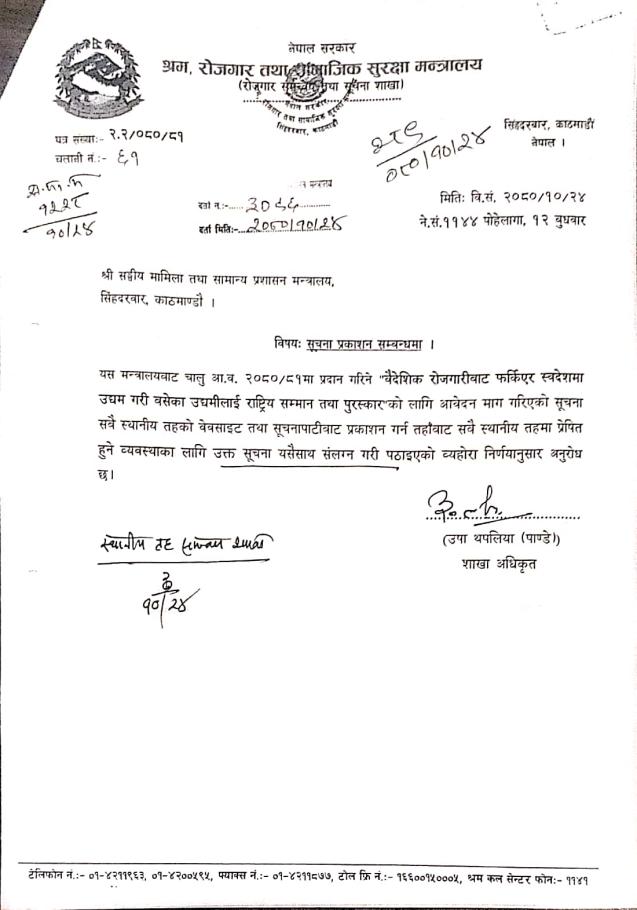 नेपाल सरकार
श्रम, रोजगार तथा सामाजिक सुरक्षा मन्त्रालय
(रोजगार समन्वय तथा सूचना शाखा)
सिंहदरबार, काठमाडौं
नेपाल ।
सिंहदरवार, काठमाडौं
पत्र संख्याः- २.२/०८०/८१
चलानी नं.:- ६१
०८०/१०/२४
१२२८
१०/२४
दर्ता नं.:- ३०८६
दर्ता मितिः- २०८०/१०/२४
मितिः वि.सं. २०८०/१०/२४
ने.सं.११४४ पोहेलागा, १२ बुधवार
श्री सङ्घीय मामिला तथा सामान्य प्रशासन मन्त्रालय,
सिंहदरवार, काठमाण्डौ ।
विषयः सूचना प्रकाशन सम्बन्धमा ।
यस मन्त्रालयवाट चालु आ.व. २०८०/८१मा प्रदान गरिने "वैदेशिक रोजगारीवाट फर्किएर स्वदेशमा
उद्यम गरी वसेका उद्यमीलाई राष्ट्रिय सम्मान तथा पुरस्कार"को लागि आवेदन माग गरिएको सूचना
सवै स्थानीय तहको वेवसाइट तथा सूचनापाटीवाट प्रकाशन गर्न तहाँवाट सवै स्थानीय तहमा प्रेषित
हुने व्यवस्थाका लागि उक्त सूचना यसैसाय संलग्न गरी पठाइएको व्यहोरा निर्णयानुसार अनुरोध
छ।
(उषा थपलिया (पाण्डे))
शाखा अधिकृत
स्थानीय तह समन्वय शाखा
१०/२४
टेलिफोन नं.:- ०१-४२११९६३, ०१-४२००५९५, फ्याक्स नं.:- ०१-४२११८७७, टोल फ्रि नं.:- १६६००१५०००५, श्रम कल सेन्टर फोनः- ११४१